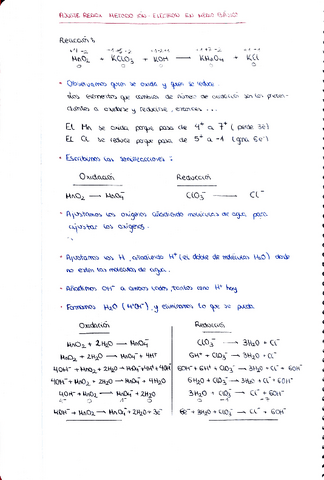 AJUSTE REDOX MÉTODO ION-ELECTRÓN EN MEDIO BÁSICO
Reacción:
MnO₂ + KClO₃ + KOH → KMnO₄ + KCl
• Observamos quien se oxida y quien se reduce.
Los elementos que cambian de número de oxidación son los que
a oxidarse y reducirse, entonces ...
El Mn se oxida porque pasa de 4⁺ a 7⁺ (pierde 3e⁻)
El Cl se reduce porque pasa de 5⁺ a -1 (gana 6e⁻)
• Escribimos las semirreacciones:
Oxidación Reducción
MnO₂ → MnO₄⁻ ClO₃⁻ → Cl⁻
• Ajustamos los oxígenos añadiendo moléculas de agua para
ajustar los oxígenos.
• Ajustamos los H, añadiendo H⁺ (el doble de moléculas H₂O) donde
no estén las moléculas de agua.
• Añadimos OH⁻ a ambos lados, tantos como H⁺ hay
• Formamos H₂O (H⁺OH⁻), y eliminamos lo que se pueda
Oxidación Reducción
MnO₂ + 2H₂O → MnO₄⁻ ClO₃⁻ → 3H₂O + Cl⁻
MnO₂ + 2H₂O → MnO₄⁻ + 4H⁺ 6H⁺ + ClO₃⁻ → 3H₂O + Cl⁻
4OH⁻ + MnO₂ + 2H₂O → MnO₄⁻ + 4H⁺ + 4OH⁻ 6OH⁻ + 6H⁺ + ClO₃⁻ → 3H₂O + Cl⁻ + 6OH⁻
4OH⁻ + MnO₂ + 2H₂O → MnO₄⁻ + 4H₂O 6H₂O + ClO₃⁻ → 3H₂O + Cl⁻ + 6OH⁻
4OH⁻ + MnO₂ → MnO₄⁻ + 2H₂O 3H₂O + ClO₃⁻ → Cl⁻ + 6OH⁻
4OH⁻ + MnO₂ → MnO₄⁻ + 2H₂O + 3e⁻ 6e⁻ + 3H₂O + ClO₃⁻ → Cl⁻ + 6OH⁻